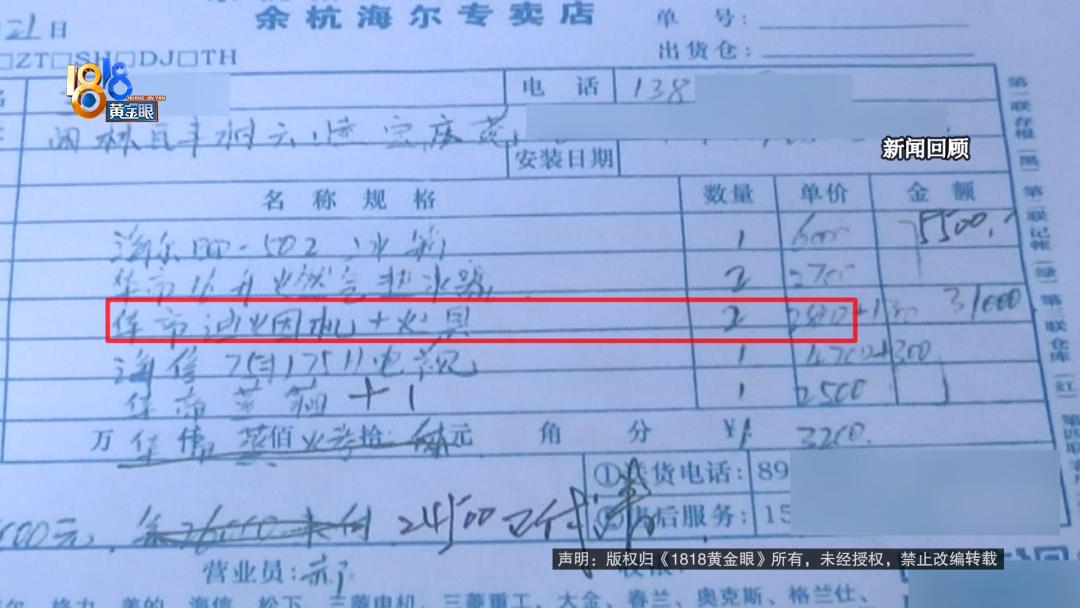 余杭海尔专卖店
单 号:
21日
出货仓:
□ZT□SH□DJ□TH
1818
HUANG JIN YAN
黄金眼
电 话 138
新闻回顾
安装日期
名 称 规 格 数量 单价 金 额
海尔 502 冰箱 1 5500
华帝16升燃气热水器 2 2700
华帝油烟机+灶具 2 31000
海信75 电视 1 4700+300
华帝蒸箱+1 1 2500
万 仟 佰 拾 元 角 分 ¥ 3200
①送货电话: 89
24500 已付清
售后服务: 15
00元
营业员:
声明：版权归《1818黄金眼》所有，未经授权，禁止改编转载
格力、美的、海信、松下、三菱电机、三菱重工、大金、春兰、奥克斯、格兰仕、
第一联存根(黑) 第二联记帐(绿) 第三联仓库(红) 第四联